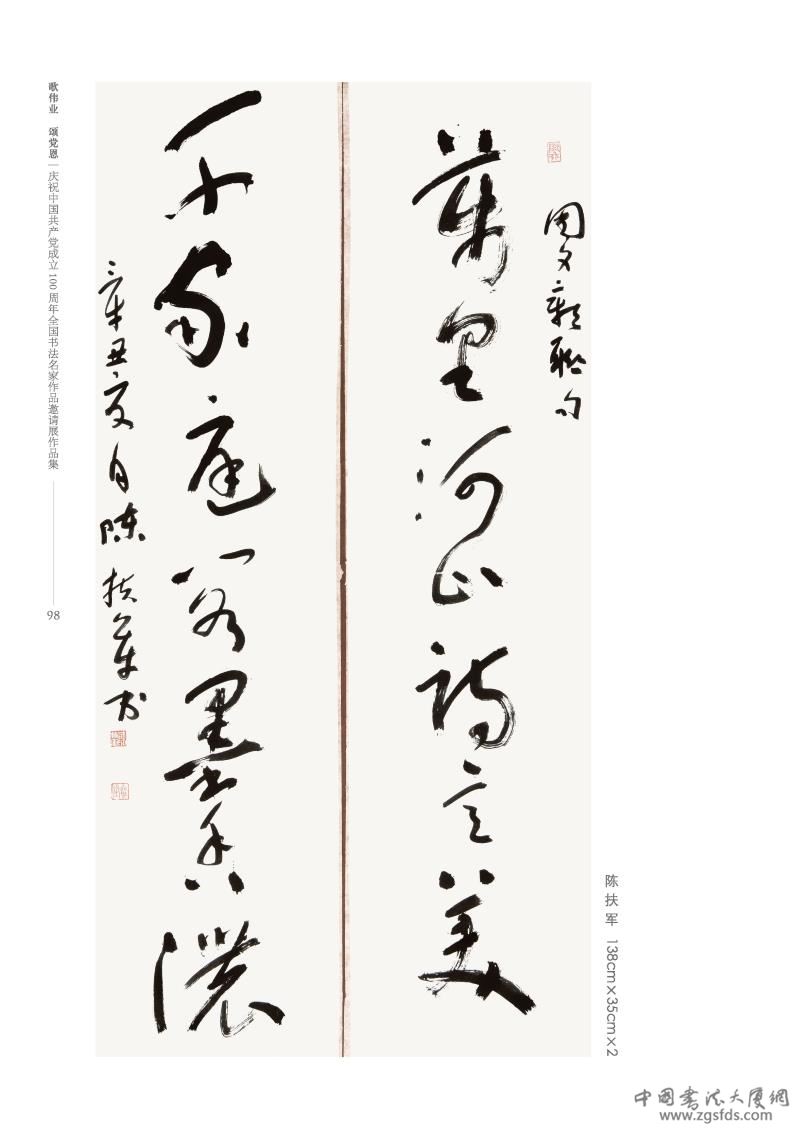 周文聯句
萬里河山詩意美
千家庭墨香濃
辛丑夏月陳扶軍书
歌伟业 颂党恩|庆祝中国共产党成立100周年全国书法名家作品邀请展作品集
98
陈扶军 138cm×35cm×2
中国书法大厦網
www.zgsfds.com